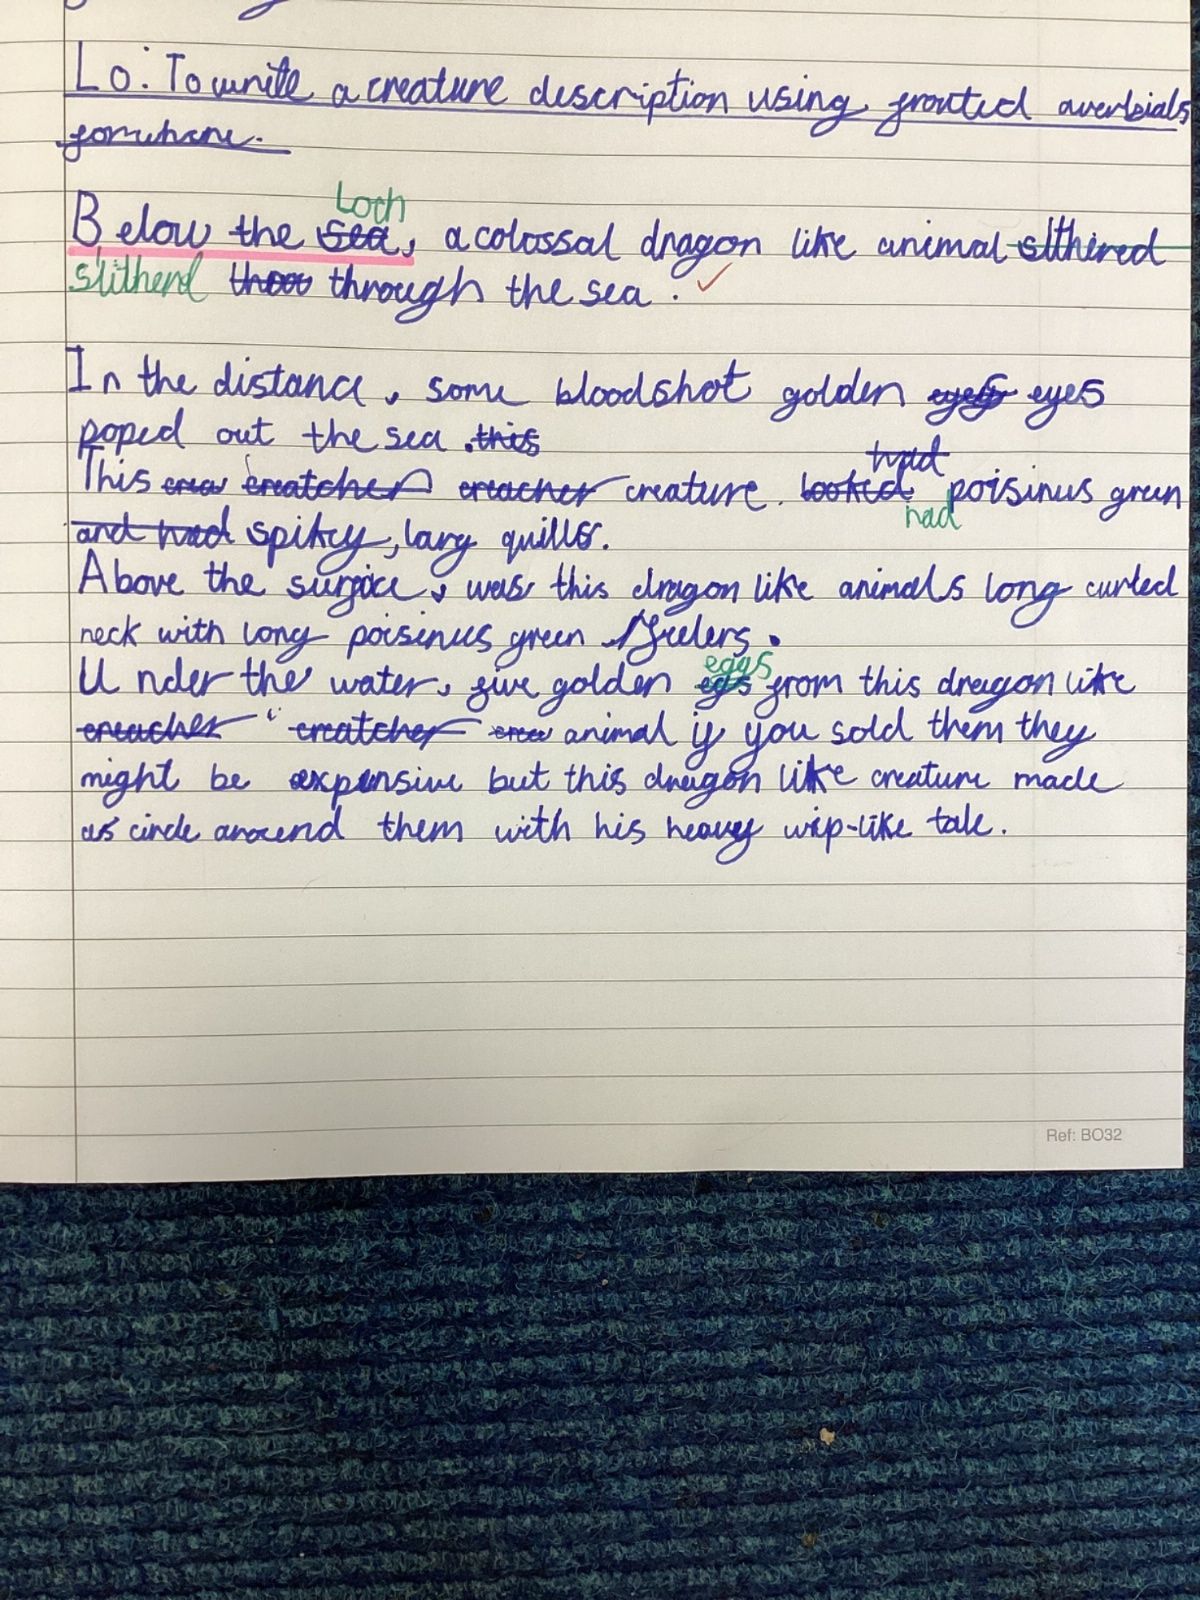 Lo: To write a creature description using fronted averbials
for where.
Loch
Below the sea, a colossal dragon like animal slthired
slitherd throo through the sea.
In the distance, some bloodshot golden eyes eyes
poped out the sea. this
had
This crea creatcher creacher creature. looked poisinus green
had
and had spikey, larg quills.
Above the surface, was this dragon like animals long curled
neck with long poisinus green feelers.
eggs
Under the water, five golden egs from this dragon like
creacher creatcher crea animal if you sold them they
might be expensive but this dragon like creature made
a circle around them with his heavy wip-like tale.
Ref: BO32